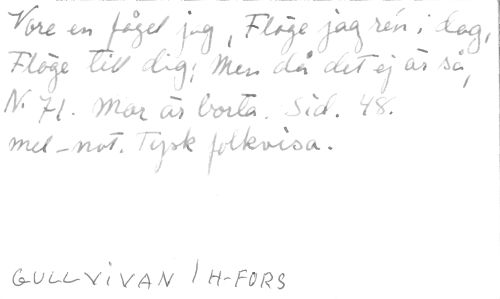 Vore en fågel jag, Flöge jag ren i dag,
Flöge till dig; Men då det ej är så,
N. 71. Mor är borta. Sid. 48.
mel-not. Tysk folkvisa.
GULLVIVAN / H-FORS